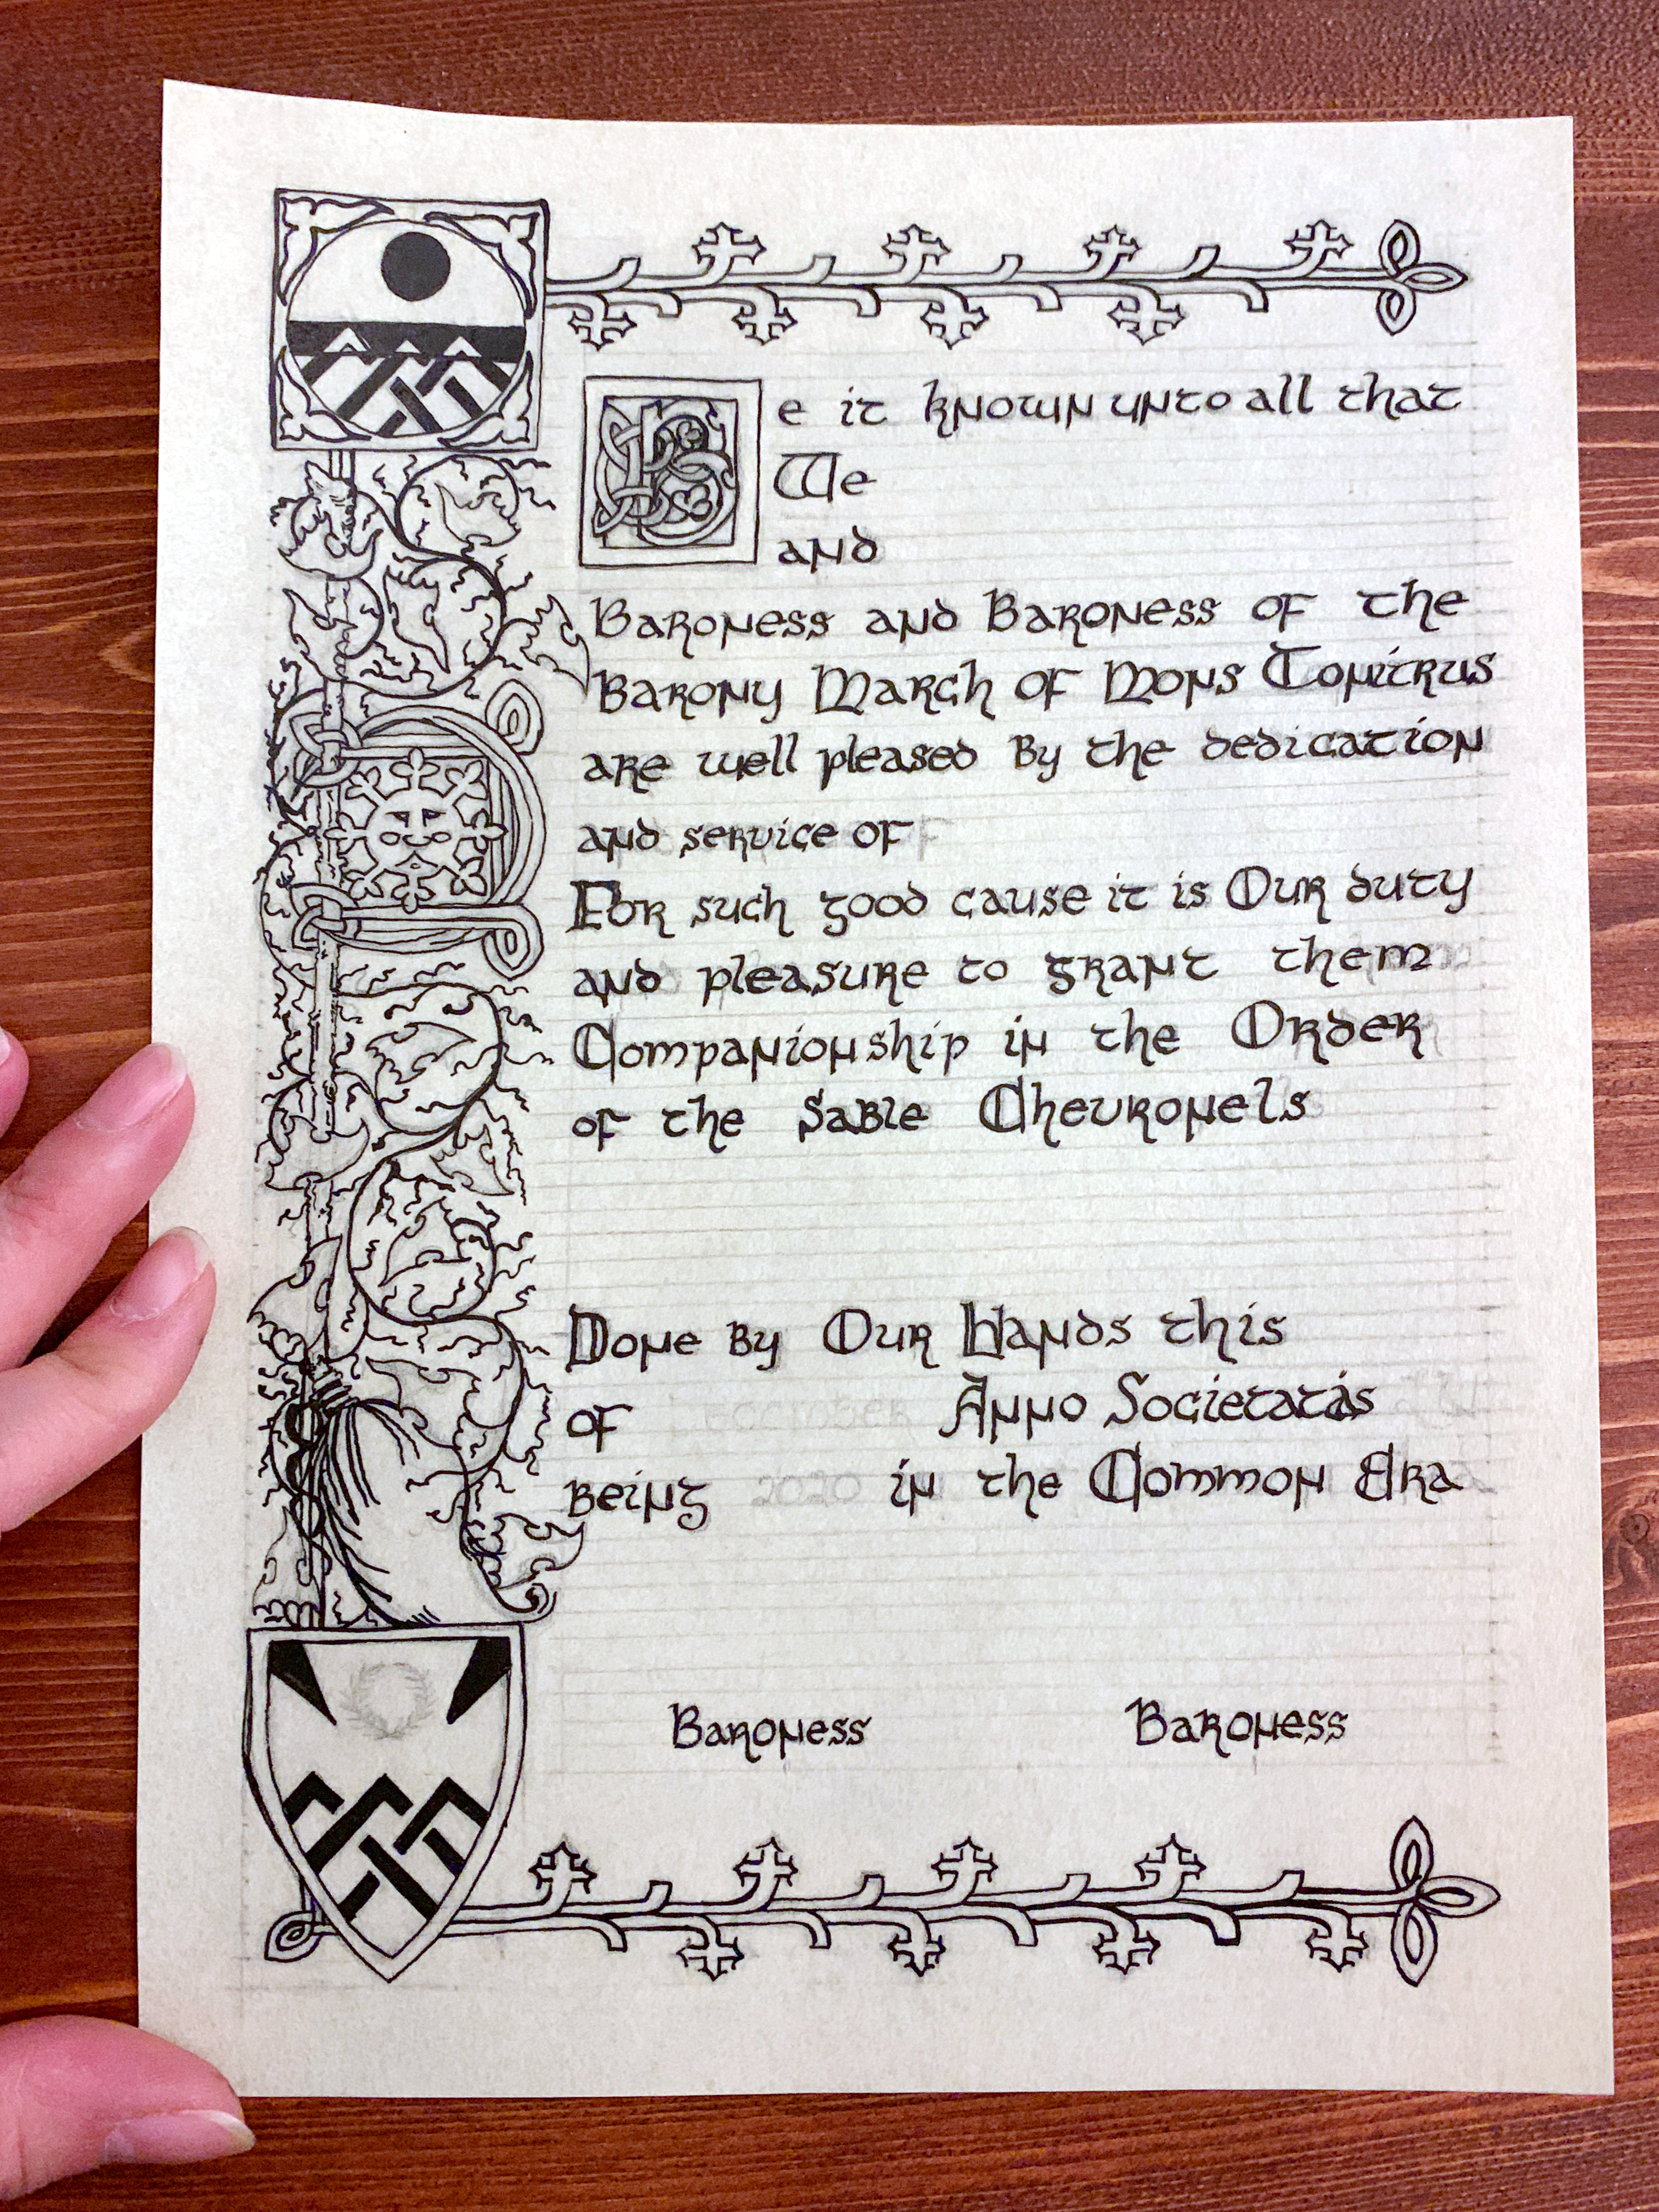 Be it known unto all that
We
and
Baroness and Baroness of the
Barony March of Mons Tonitrus
are well pleased By the dedication
and service of
For such good cause it is Our duty
and pleasure to grant them
Companionship in the Order
of the Sable Chevronels
Done By Our Hands this
of Anno Societatis
Being 2020 in the Common Era
Baroness Baroness